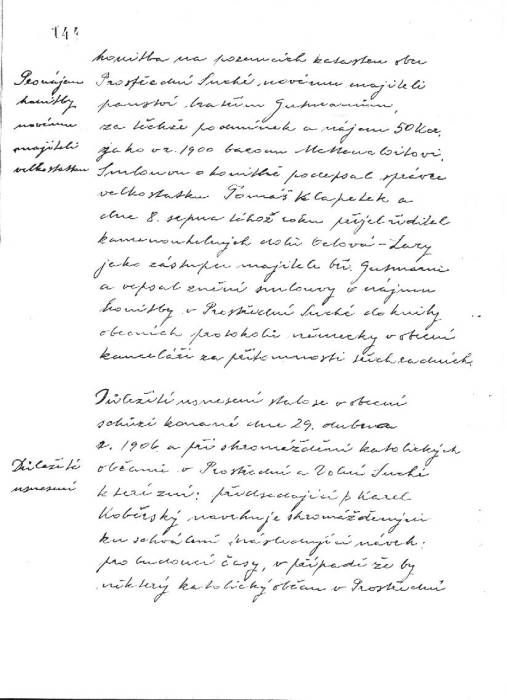 144
honitba na pozemcích katastru obce
Pronájem
honitby
novému
majiteli
velkostatku
Prostřední Suché, novému majiteli
panství bratřím Gutmannům,
za těchže podmínek a nájem 50 Kor.
jako v r. 1900 baronu
Smlouvu o honitbě podepsal správce
velkostatku Tomáš Klapetek a
dne 8. srpna téhož roku přijel ředitel
kamenouhelných dolů Lazy
jako zástupce majitele bří. Gutmann
a vepsal znění smlouvy o nájmu
honitby v Prostřední Suché do knihy
obecních protokolů německy v obecní
kanceláři za přítomnosti radních.
Důležité
usnesení
Důležité usnesení stalo se v obecní
schůzi konané dne 29. dubna
r. 1906 a při shromáždění katolických
občanů v Prostřední a Dolní Suché
které zní: předsedající p. Karel
Koběrský navrhuje shromážděným
ku schválení následující návrh:
pro budoucí časy, v případě že by
některý katolický občan v Prostřední